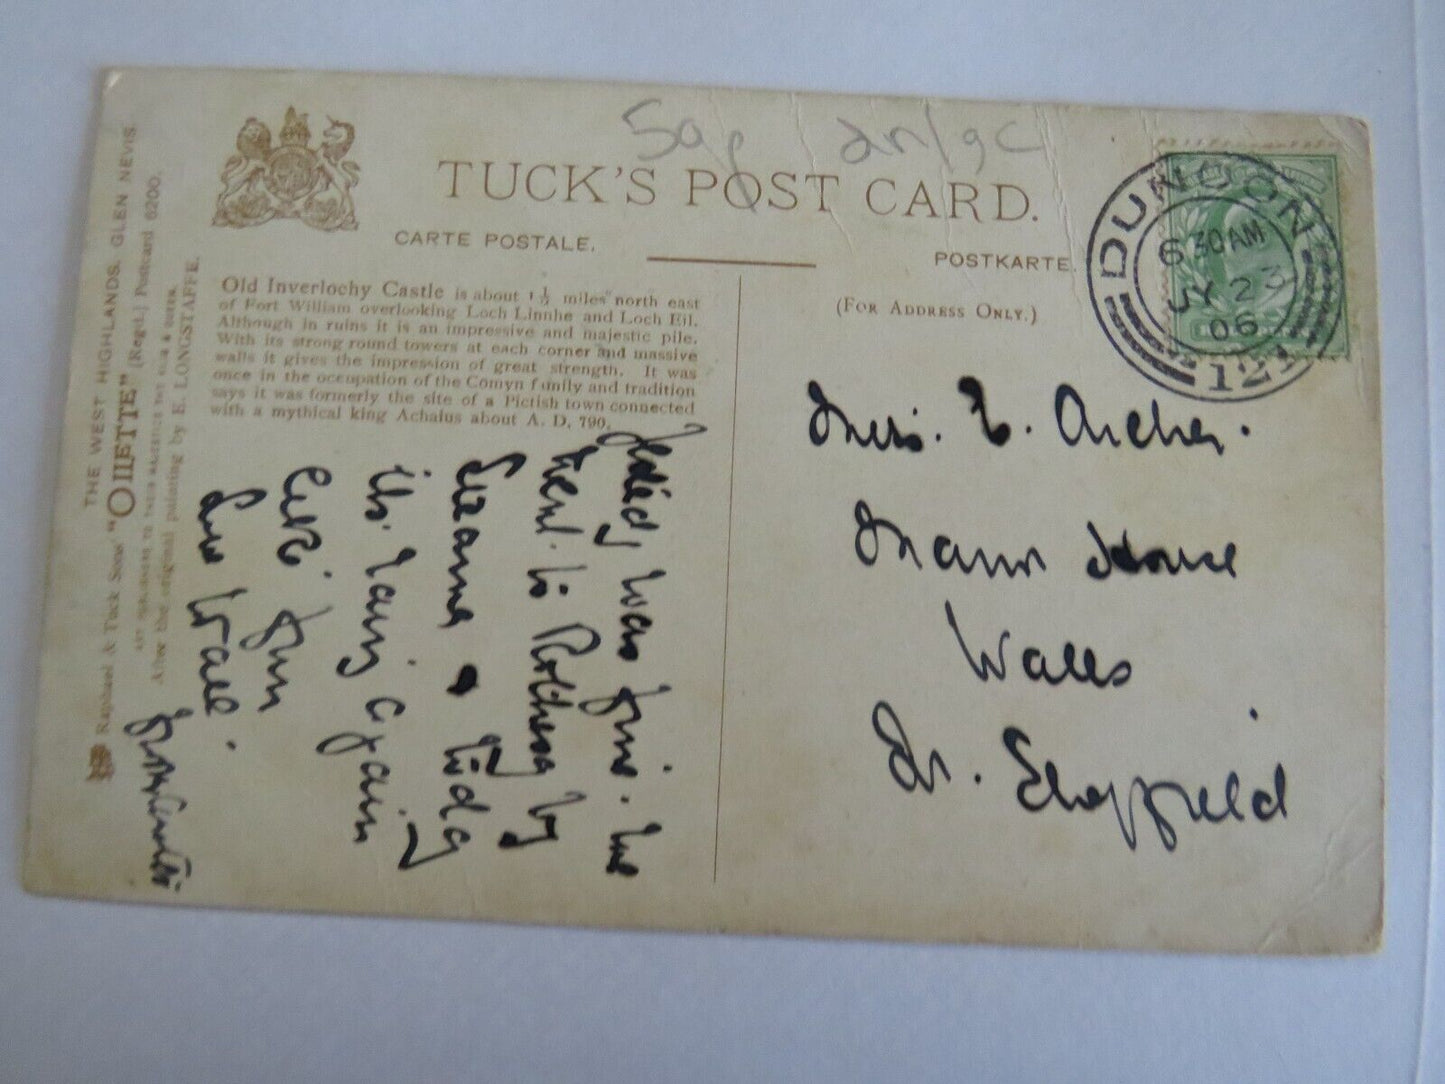 TUCK'S POST CARD.
CARTE POSTALE.
POSTKARTE.
(FOR ADDRESS ONLY.)
DUNOON
6 30 AM
JY 23
06
121
THE WEST HIGHLANDS. GLEN NEVIS.
Raphael & Tuck Sons' "OILETTE" (Regd.) Postcard 6200.
ART PUBLISHERS TO THEIR MAJESTIES THE KING & QUEEN.
After the original painting by E. LONGSTAFFE.
Old Inverlochy Castle is about 1½ miles north east
of Fort William overlooking Loch Linnhe and Loch Eil.
Although in ruins it is an impressive and majestic pile.
With its strong round towers at each corner and massive
walls it gives the impression of great strength. It was
once in the occupation of the Comyn family and tradition
says it was formerly the site of a Pictish town connected
with a mythical king Achaius about A. D. 790.
was fine. We
went to Rothesay by
Steamer &
it's rainy again
Mrs. E. Archer.
Manor House
Wales
Nr. Sheffield